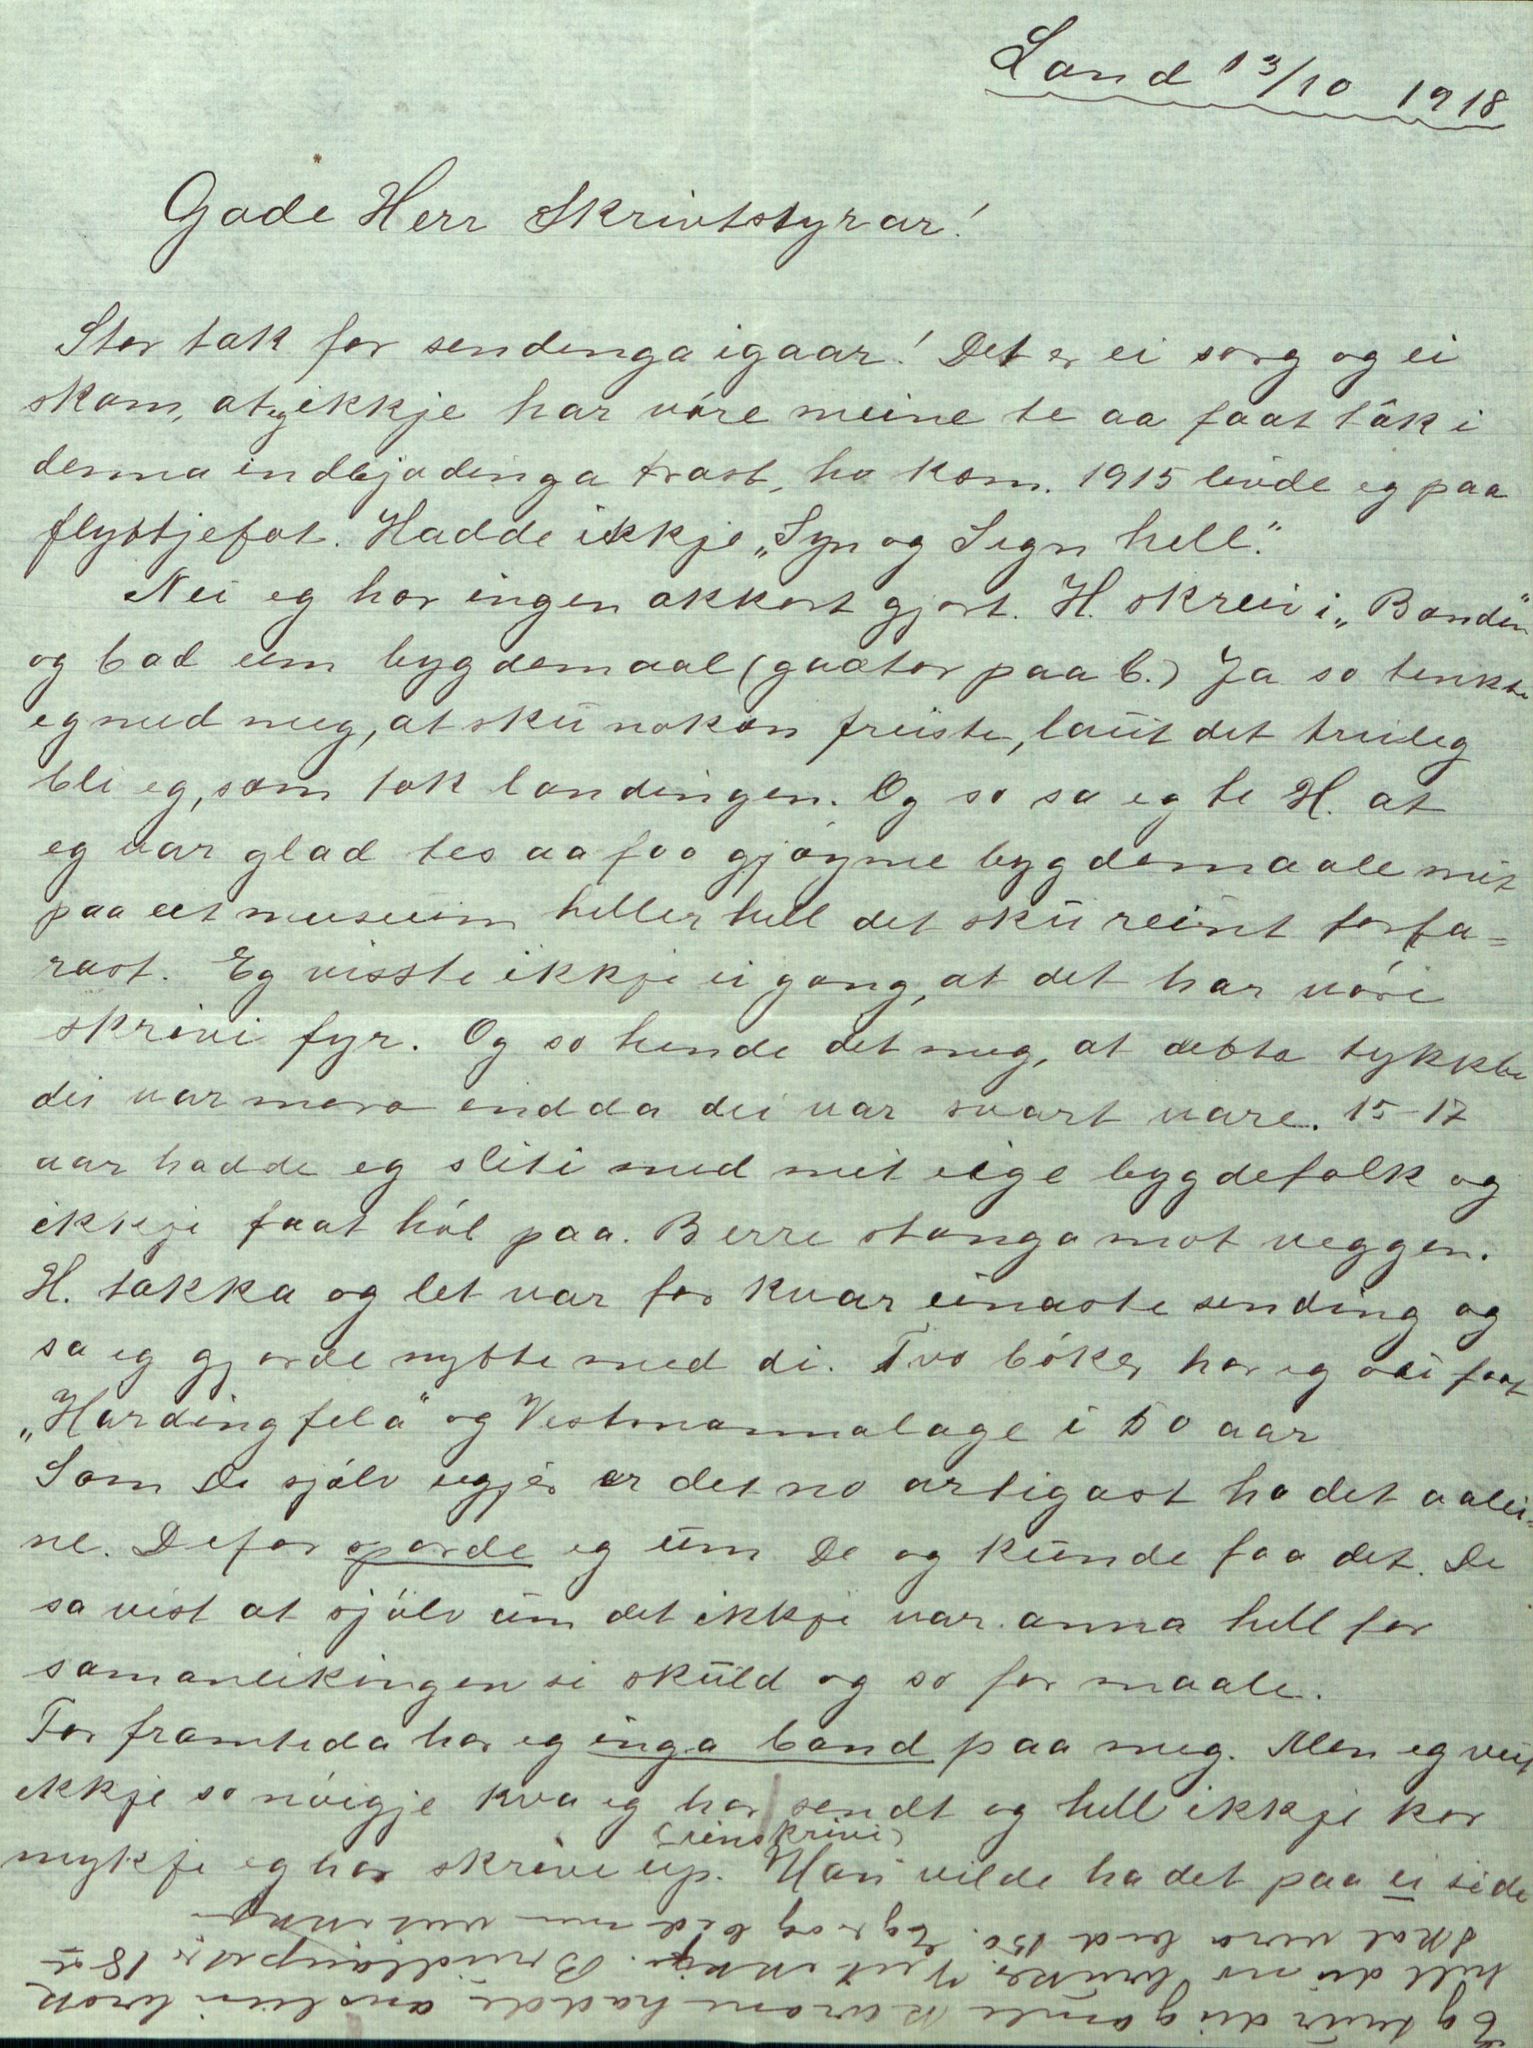 Land 13/10 1918
Gode Herr Skrivtstyrar!
Stor tak for sendinga igaar! Det er ei sorg og ei
skam, at eg ikkje har vóre meine te aa faat tak i
denna indbjodinga trast, ho kom. 1915 livde eg paa
flyttjefot. Hadde ikkje „Syn og Segn hell".
Nei eg har ingen akkort gjort. H. skreiv i „Bonden"
og bad um bygdemaal (gaator paa b.) Ja so tenkte
eg med meg, at sku nokon freiste, laut det truleg
bli eg, som tok landingen. Og so sa eg te H. at
eg var glad tes aa faa gjøyme bygdemaale mit
paa eet museum heller hell det sku reint forfa=
rast. Eg visste ikkje ei gong, at det har vóri
skrivi fyr. Og so hende det meg, at detta tykkte
dei var mora endda dei var svart vare. 15-17
aar hadde eg sliti med mit eige bygdefolk og
ikkje faat hól paa. Berre stanga mot veggen.
H. takka og let var for kvar einaste sending og
sa eg gjorde nytte med di. Two bóker har eg ósi faat
„Hardingfela" og Vestmannalage i 50 aar
Som De sjólv segjer er det no artigast ha det aalei=
ne. Defor sporde eg um De og kunde faa det. De
sa vist at sjólv um det ikkje var anna hell for
samanlikingen si skuld og so for maale.
For framtida har eg inga band paa meg. Men eg veit
ikkje so nóigje kva eg har sendt og hell ikkje kor
(reinskrivi)
mykje eg har skrive up. Han vilde ha det paa ei side
Eg trur dei gamle karane hadde ansleiu brok
hell dei no brukes. Veit ikkje. Brudlaupet i 18
skal vera bed 150. Eg og bed men veit ikkje